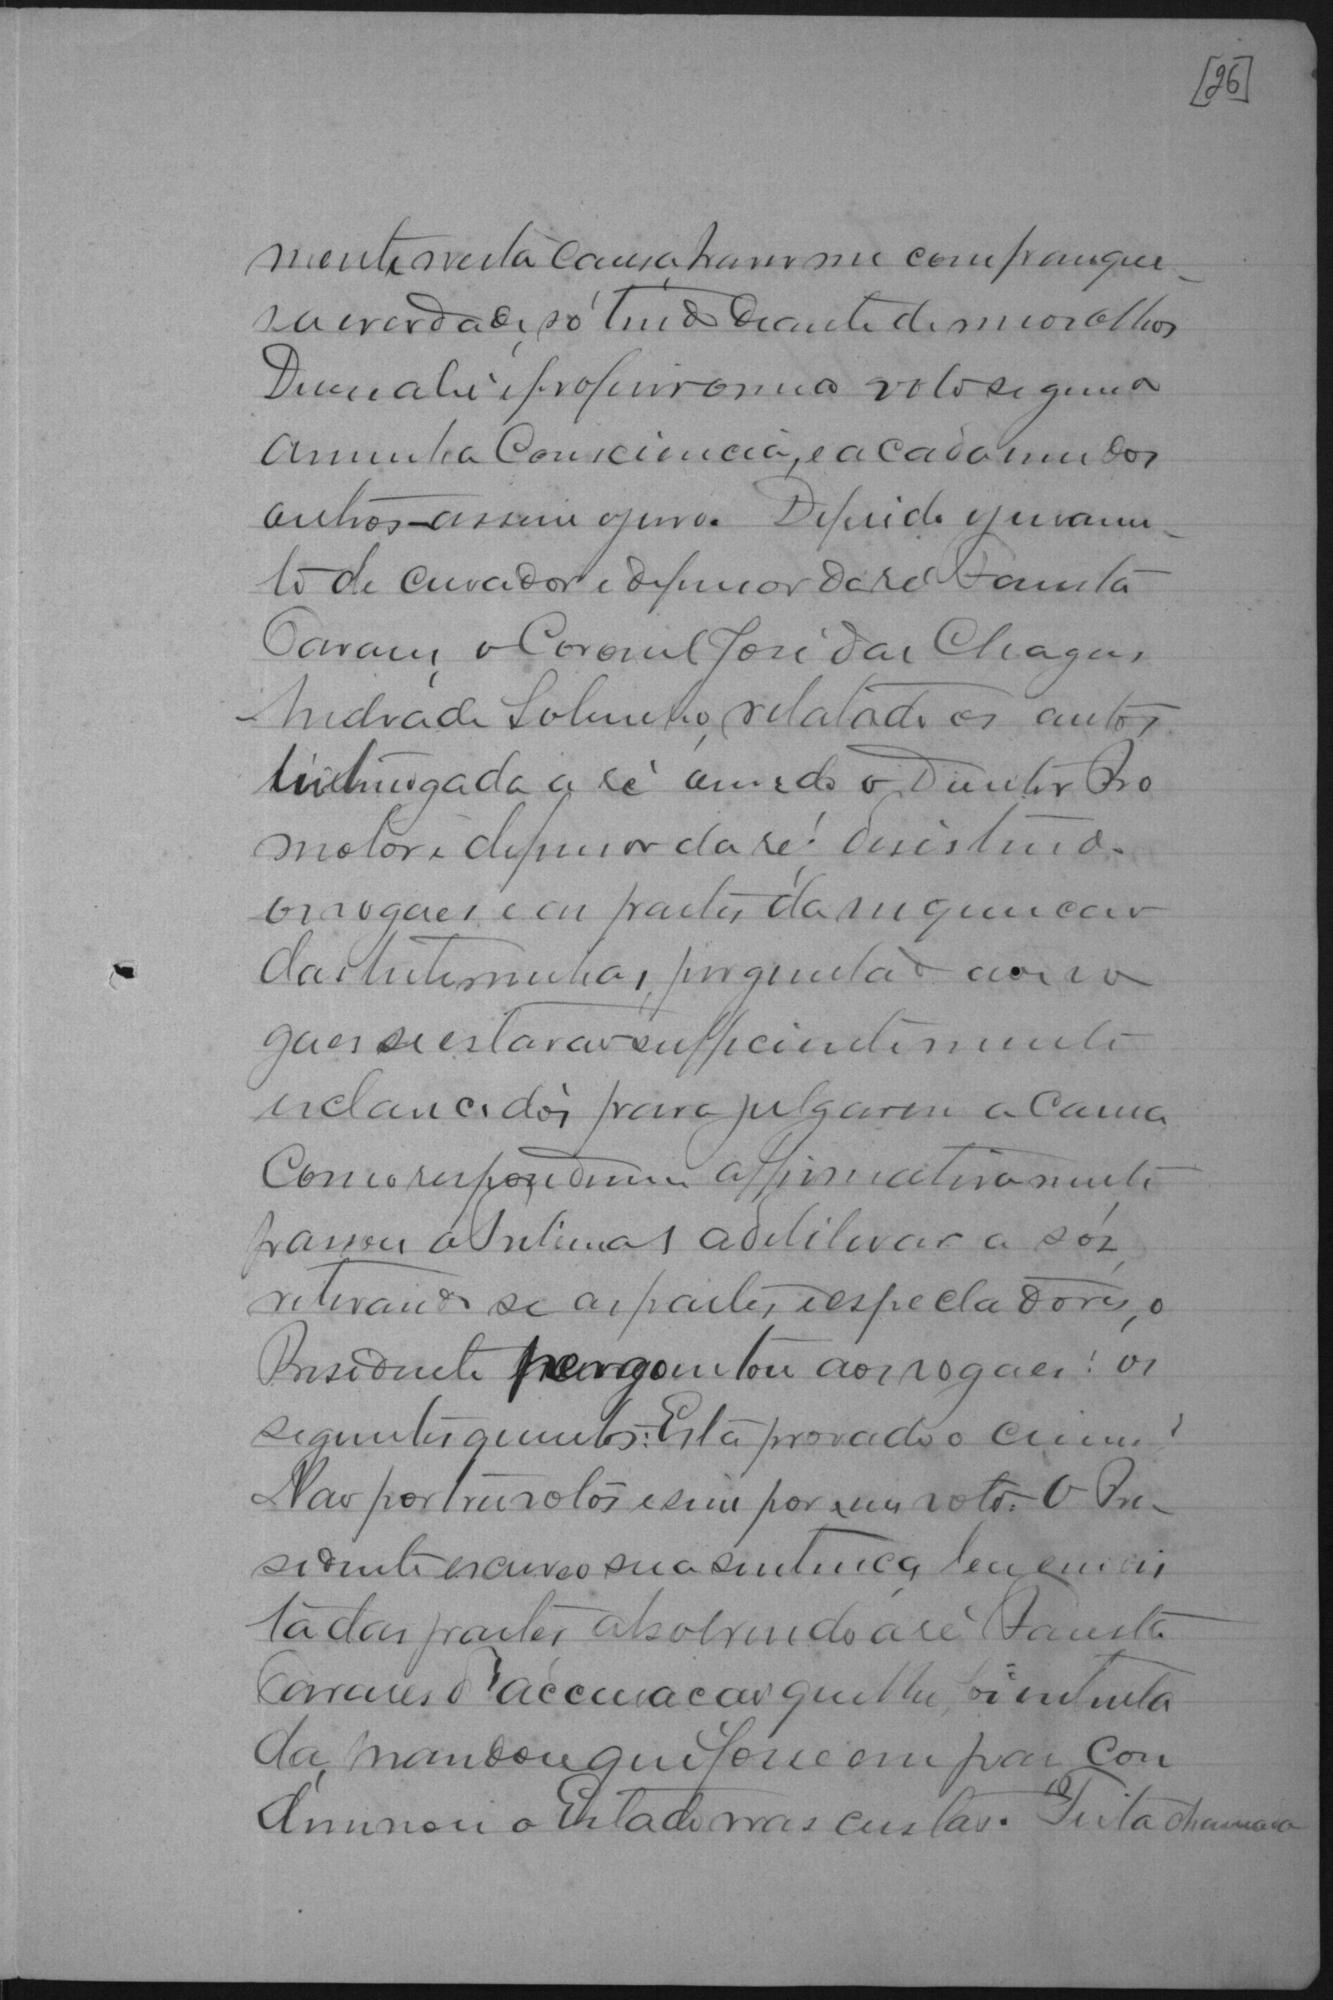 [26]
mente nesta causa, haver me com franque-
sa e verdade, só tendo deante de meos olhos
Deus a lei e proferir o meo voto segundo
a minha Consciencia, e a cada um dos
outros assim o juro. Deferido o juramen-
to de curador e defensor da ré Fausta
Tavares, o Coronel José das Chagas
Andrade Sobrinho, relatado os autos
interrogada a ré ouvido o Doutor Pro
motor e defensor da ré! desistindo
os vogaes e as partes da inquiricao
das testemunhas, perguntado aos vo
gaes se estavao sufficientemente
esclarecidos para julgarem a Causa
Como responderam affirmativamente
passou o Tribunal a deliberar a sós,
retirando se as partes e espectadores, o
Presidente pergontou aos vogaes: os
seguintes quesitos: Está provado o crime?
Nao por tres votos e sim por um voto. O Pre-
sidente escreveo sua sentença, leu em vis
ta das partes absolvendo a ré Fausta
Tavares d'accusacao que lhe foi intenta
da, mandou que fosse em paz con
demnou o Estado nas custas. Feita chamada